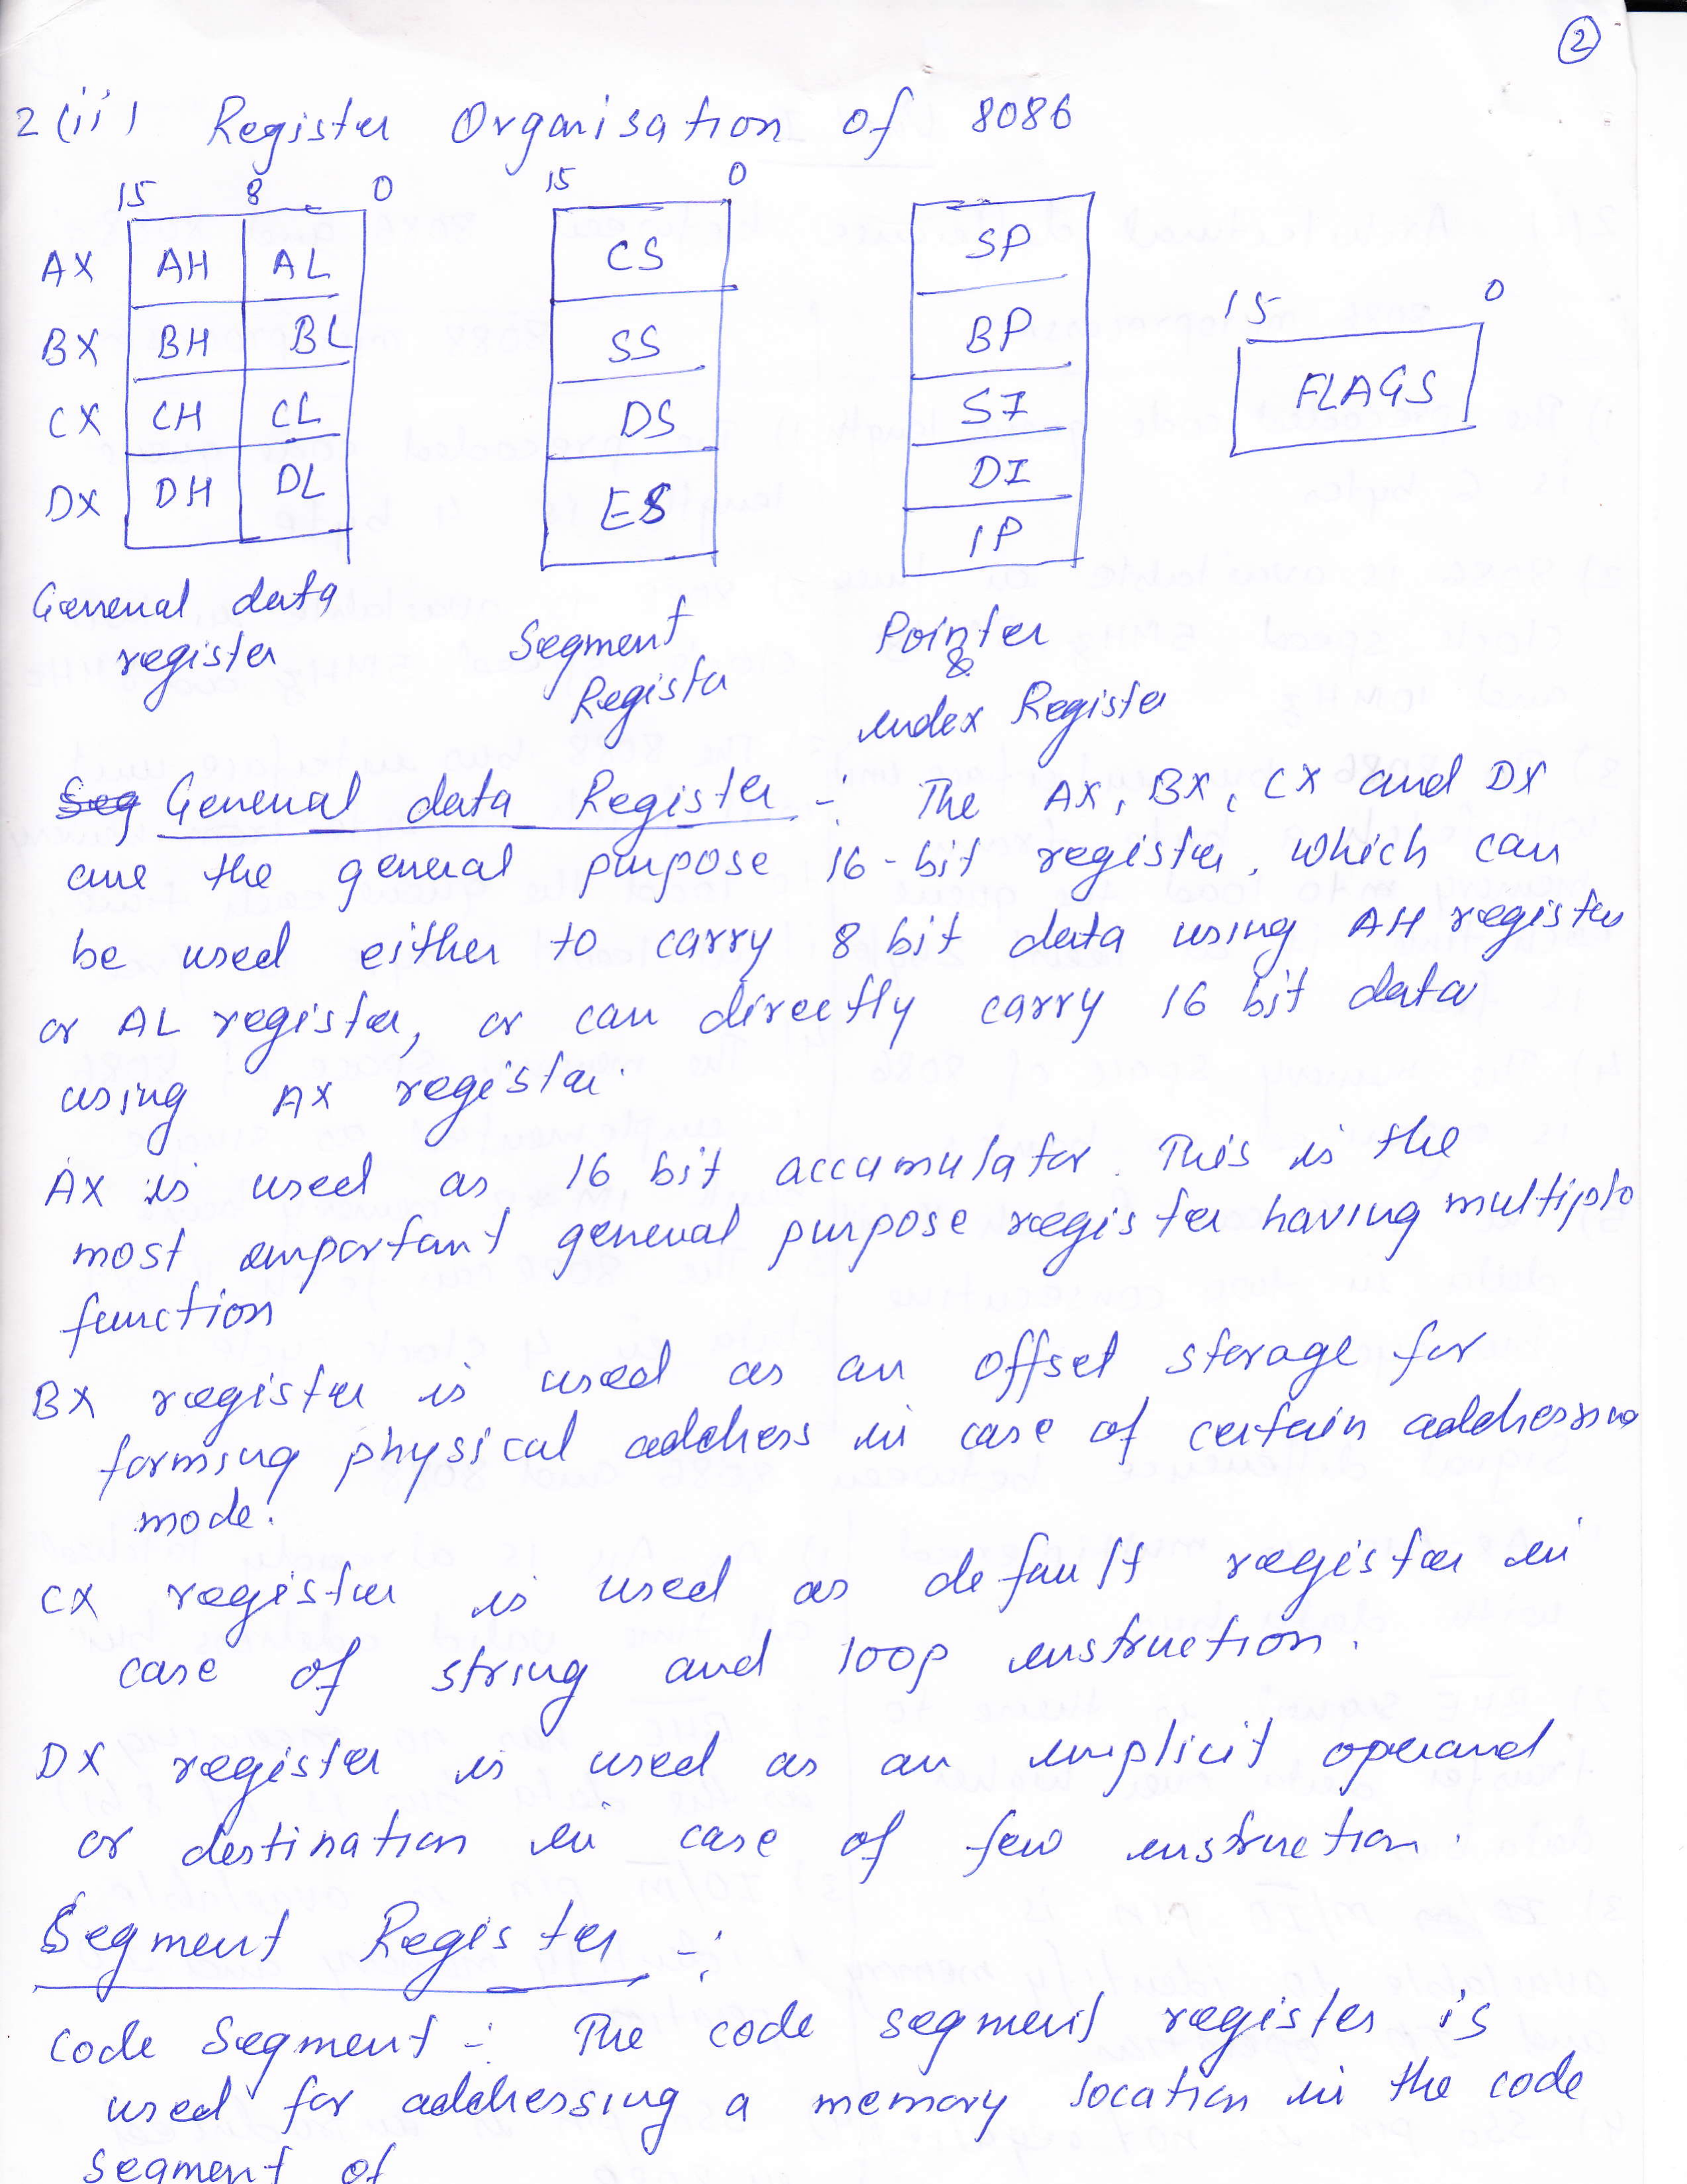 2
2(ii) Register Organisation of 8086
15 8 0 15 0
AX AH AL CS SP
15 0
BX BH BL SS BP
FLAGS
CX CH CL DS SI
DX DH DL ES DI
IP
General data register
Segment Register
Pointer & Index Register
Seg General data Register :- The AX, BX, CX and DX
are the general purpose 16-bit register, which can
be used either to carry 8 bit data using AH register
or AL register, or can directly carry 16 bit data
using AX register.
AX is used as 16 bit accumulator. This is the
most important general purpose register having multiple
function
BX register is used as an offset storage for
forming physical address in case of certain addressing
mode.
CX register is used as default register in
case of string and loop instruction.
DX register is used as an implicit operand
or destination in case of few instruction.
Segment Register :-
Code Segment :- The code segment register is
used for addressing a memory location in the code
segment of